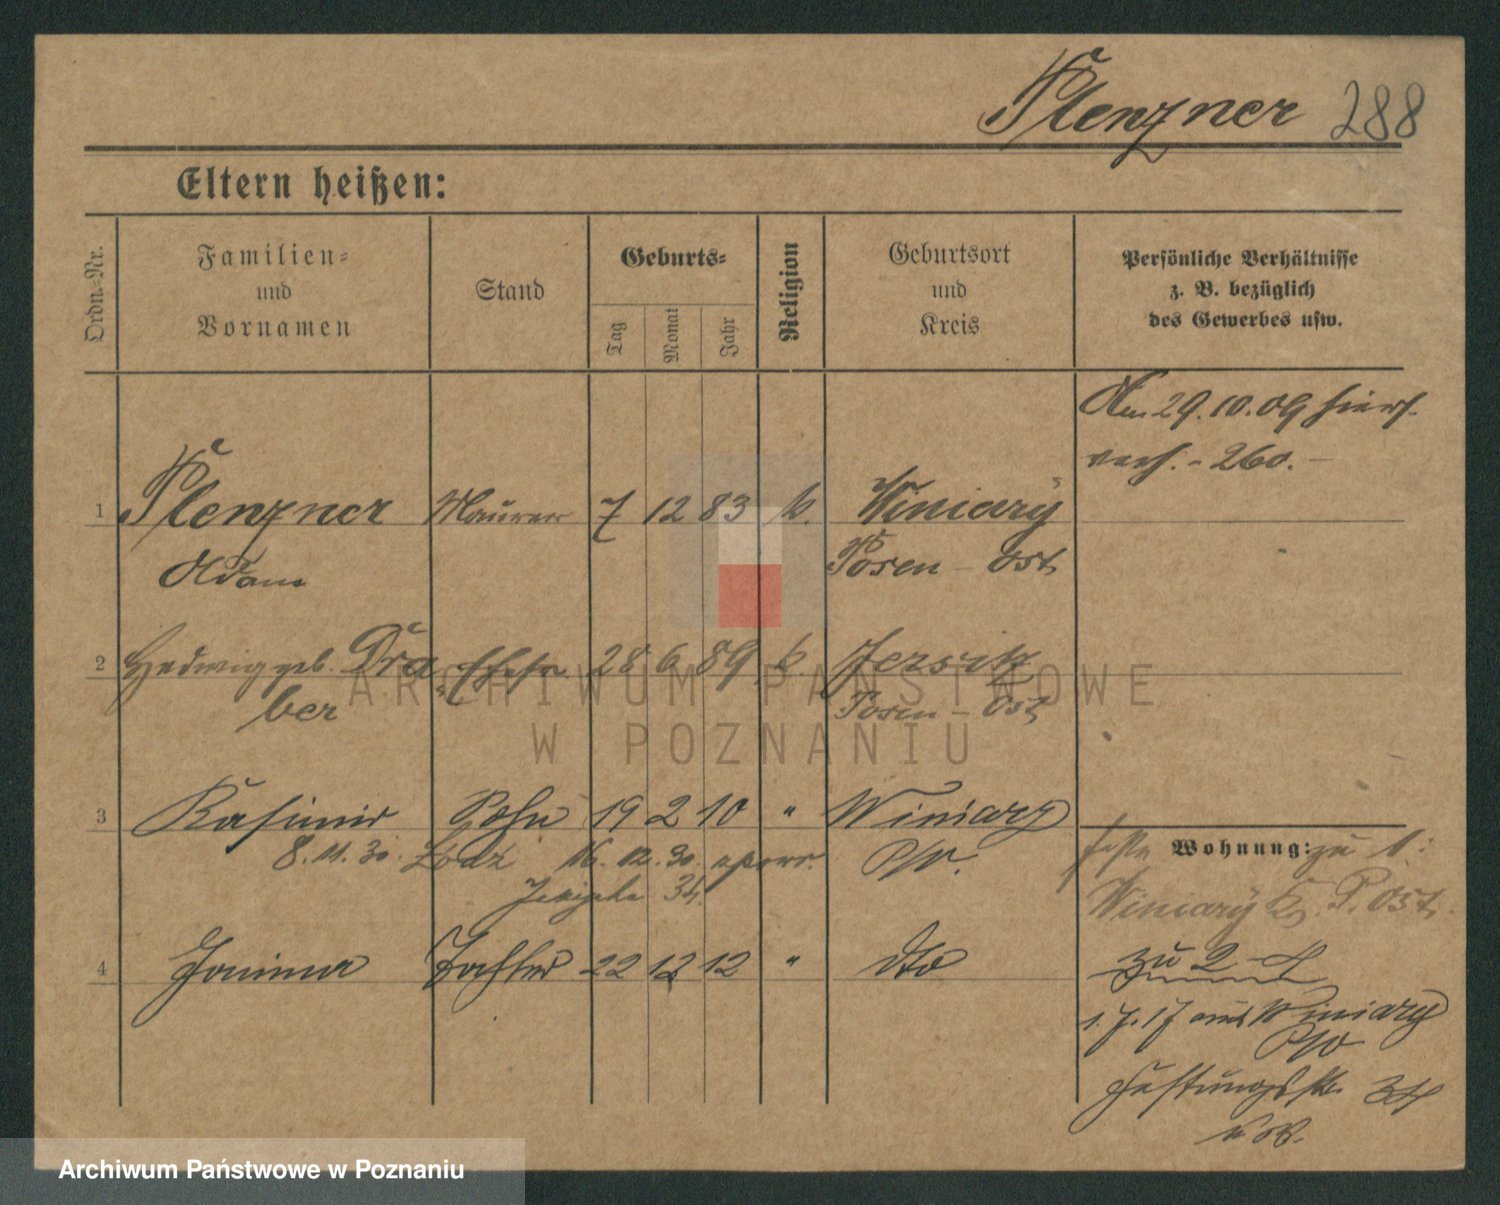 Plenzner 288
Eltern heißen:
Ordn.-Nr.
Familien- und Vornamen
Stand
Geburts-
Tag
Monat
Jahr
Religion
Geburtsort und Kreis
Persönliche Verhältnisse
z. B. bezüglich
des Gewerbes usw.
Am 29.10.09 hier
verh. - 260. -
1 Plenzner Maurer 7 12 83 k. Winiary
Adam Posen - Ost
2 Hedwig geb. Dra- Ehefr. 28 6 89 k. Jersitz
ber Posen - Ost
3 Kasimir Sohn 19 2 10 " Winiary
8.11.30. Łódź 16.12.30. P/O.
34.
4 Janina Tochter 22 12 12 " dto
Wohnung: zu 1:
Winiary Kr. P. Ost.
zu 2-4
1.7.17 aus Winiary
P/O
Festungsstr. 34
ARCHIWUM PAŃSTWOWE
W POZNANIU
Archiwum Państwowe w Poznaniu